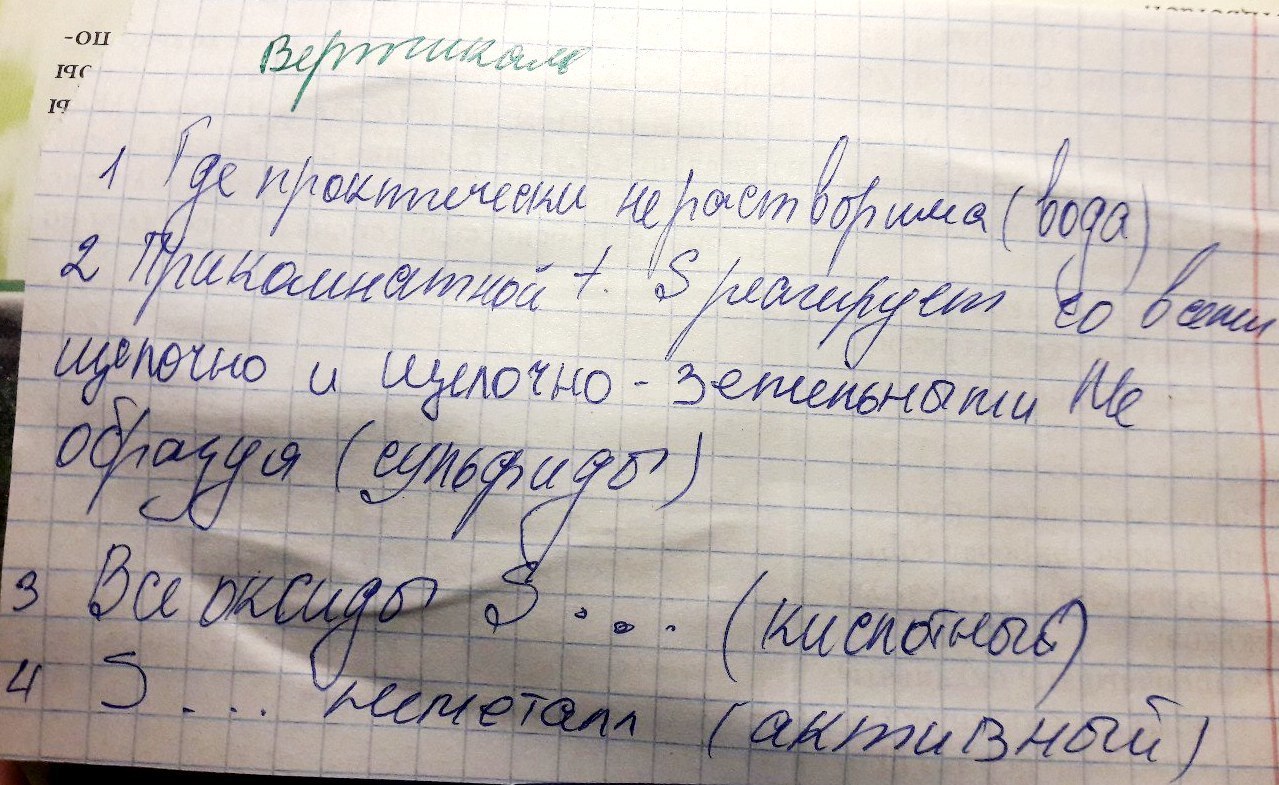 Вертикаль
1 Где практически нерастворима (вода)
2 При комнатной t. S реагирует со всеми
щелочно и щелочно-земельными Ме
образуя (сульфиды)
3 Все оксиды S ... (кислотные)
4 S ... неметалл (активный)
по-
ры
ы